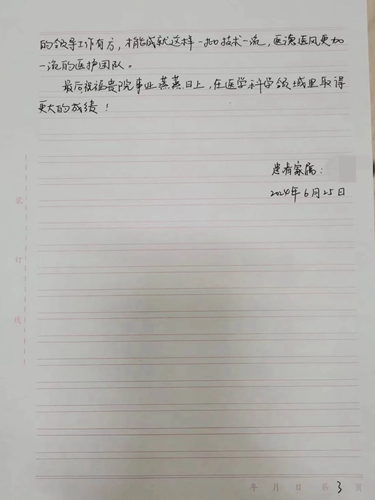 的领导工作有方，才能成就这样一批技术一流，医德医风更加
一流的医护团队。
最后祝福贵院事业蒸蒸日上，在医学科学领域里取得
更大的成绩！
患者家属：
2024年6月25日
装
订
线
年 月 日 第 3 页